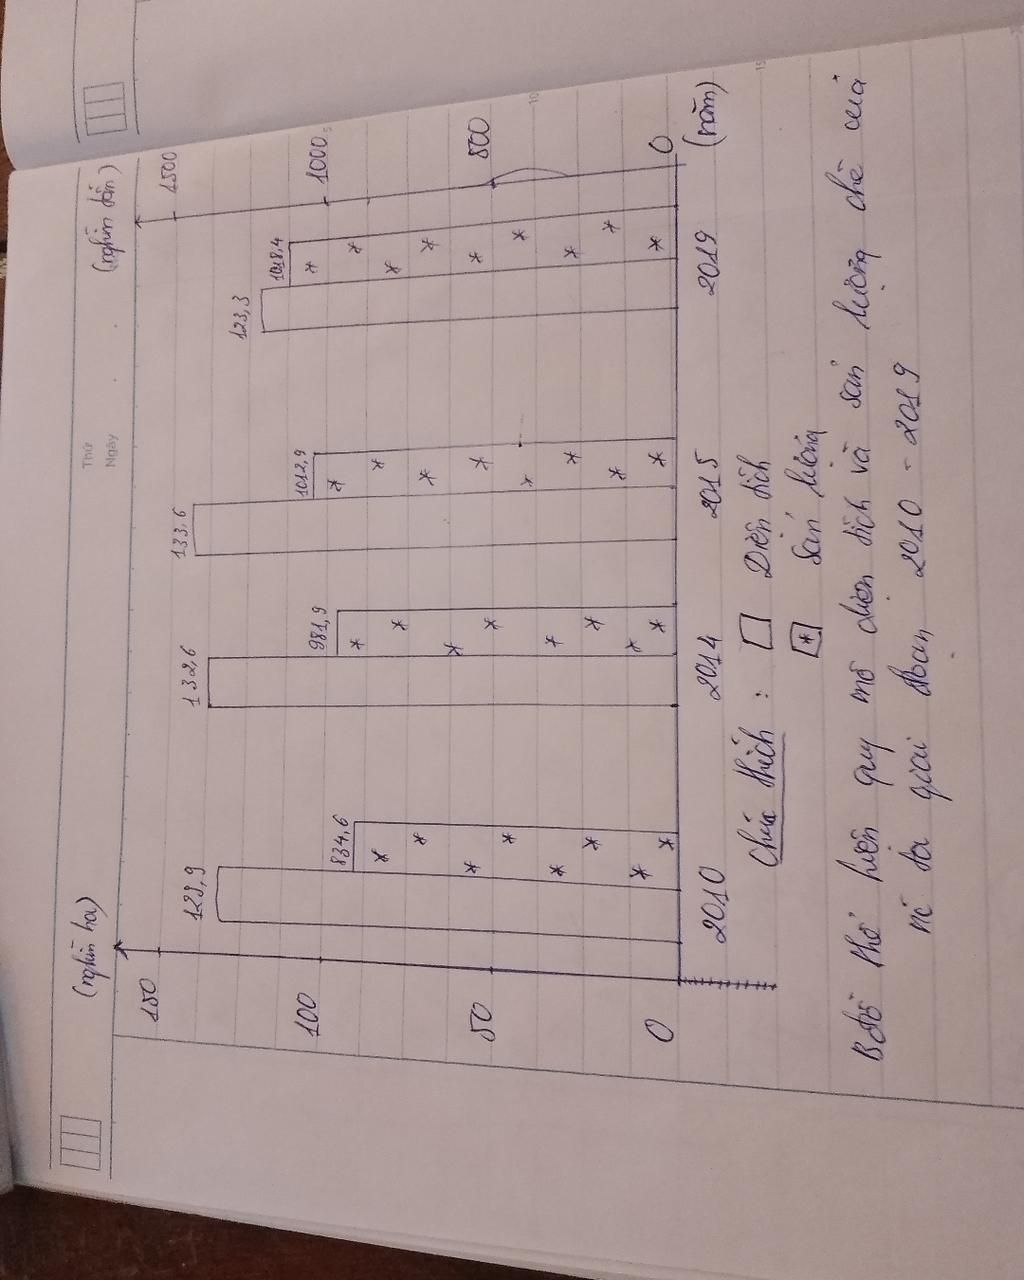 Thứ
Ngày
(nghìn ha)
(nghìn tấn)
150
100
50
0
1500
1000
500
0
129,9
834,6
132,6
981,9
133,6
1012,9
123,3
1018,4
2010
2014
2015
2019
(năm)
Chú thích :
Diện tích
Sản lượng
B đồ thể hiện quy mô diện tích và sản lượng chè của
nc ta giai đoạn 2010 - 2019
5
10
15